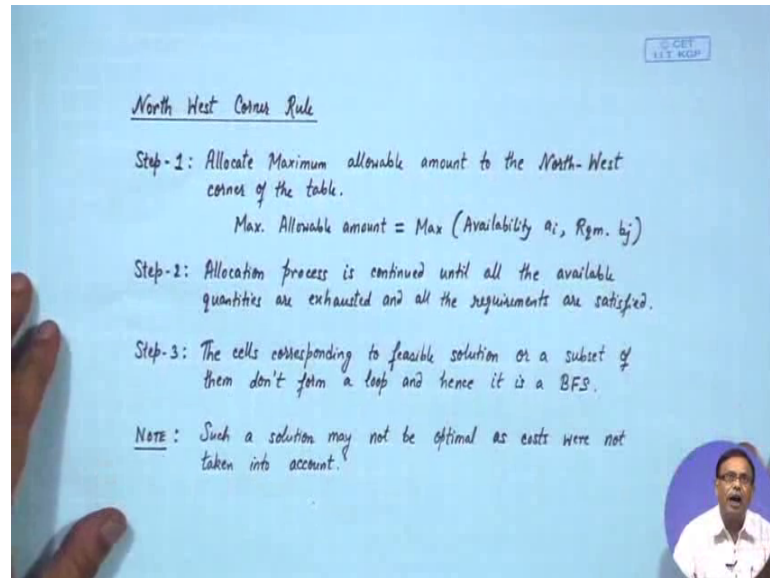 © CET
I.I.T. KGP
North West Corner Rule
Step-1: Allocate Maximum allowable amount to the North-West
corner of the table.
Max. Allowable amount = Max (Availability ai, Rqm. bj)
Step-2: Allocation process is continued until all the available
quantities are exhausted and all the requirements are satisfied.
Step-3: The cells corresponding to feasible solution or a subset of
them don't form a loop and hence it is a BFS.
NOTE: Such a solution may not be optimal as costs were not
taken into account.